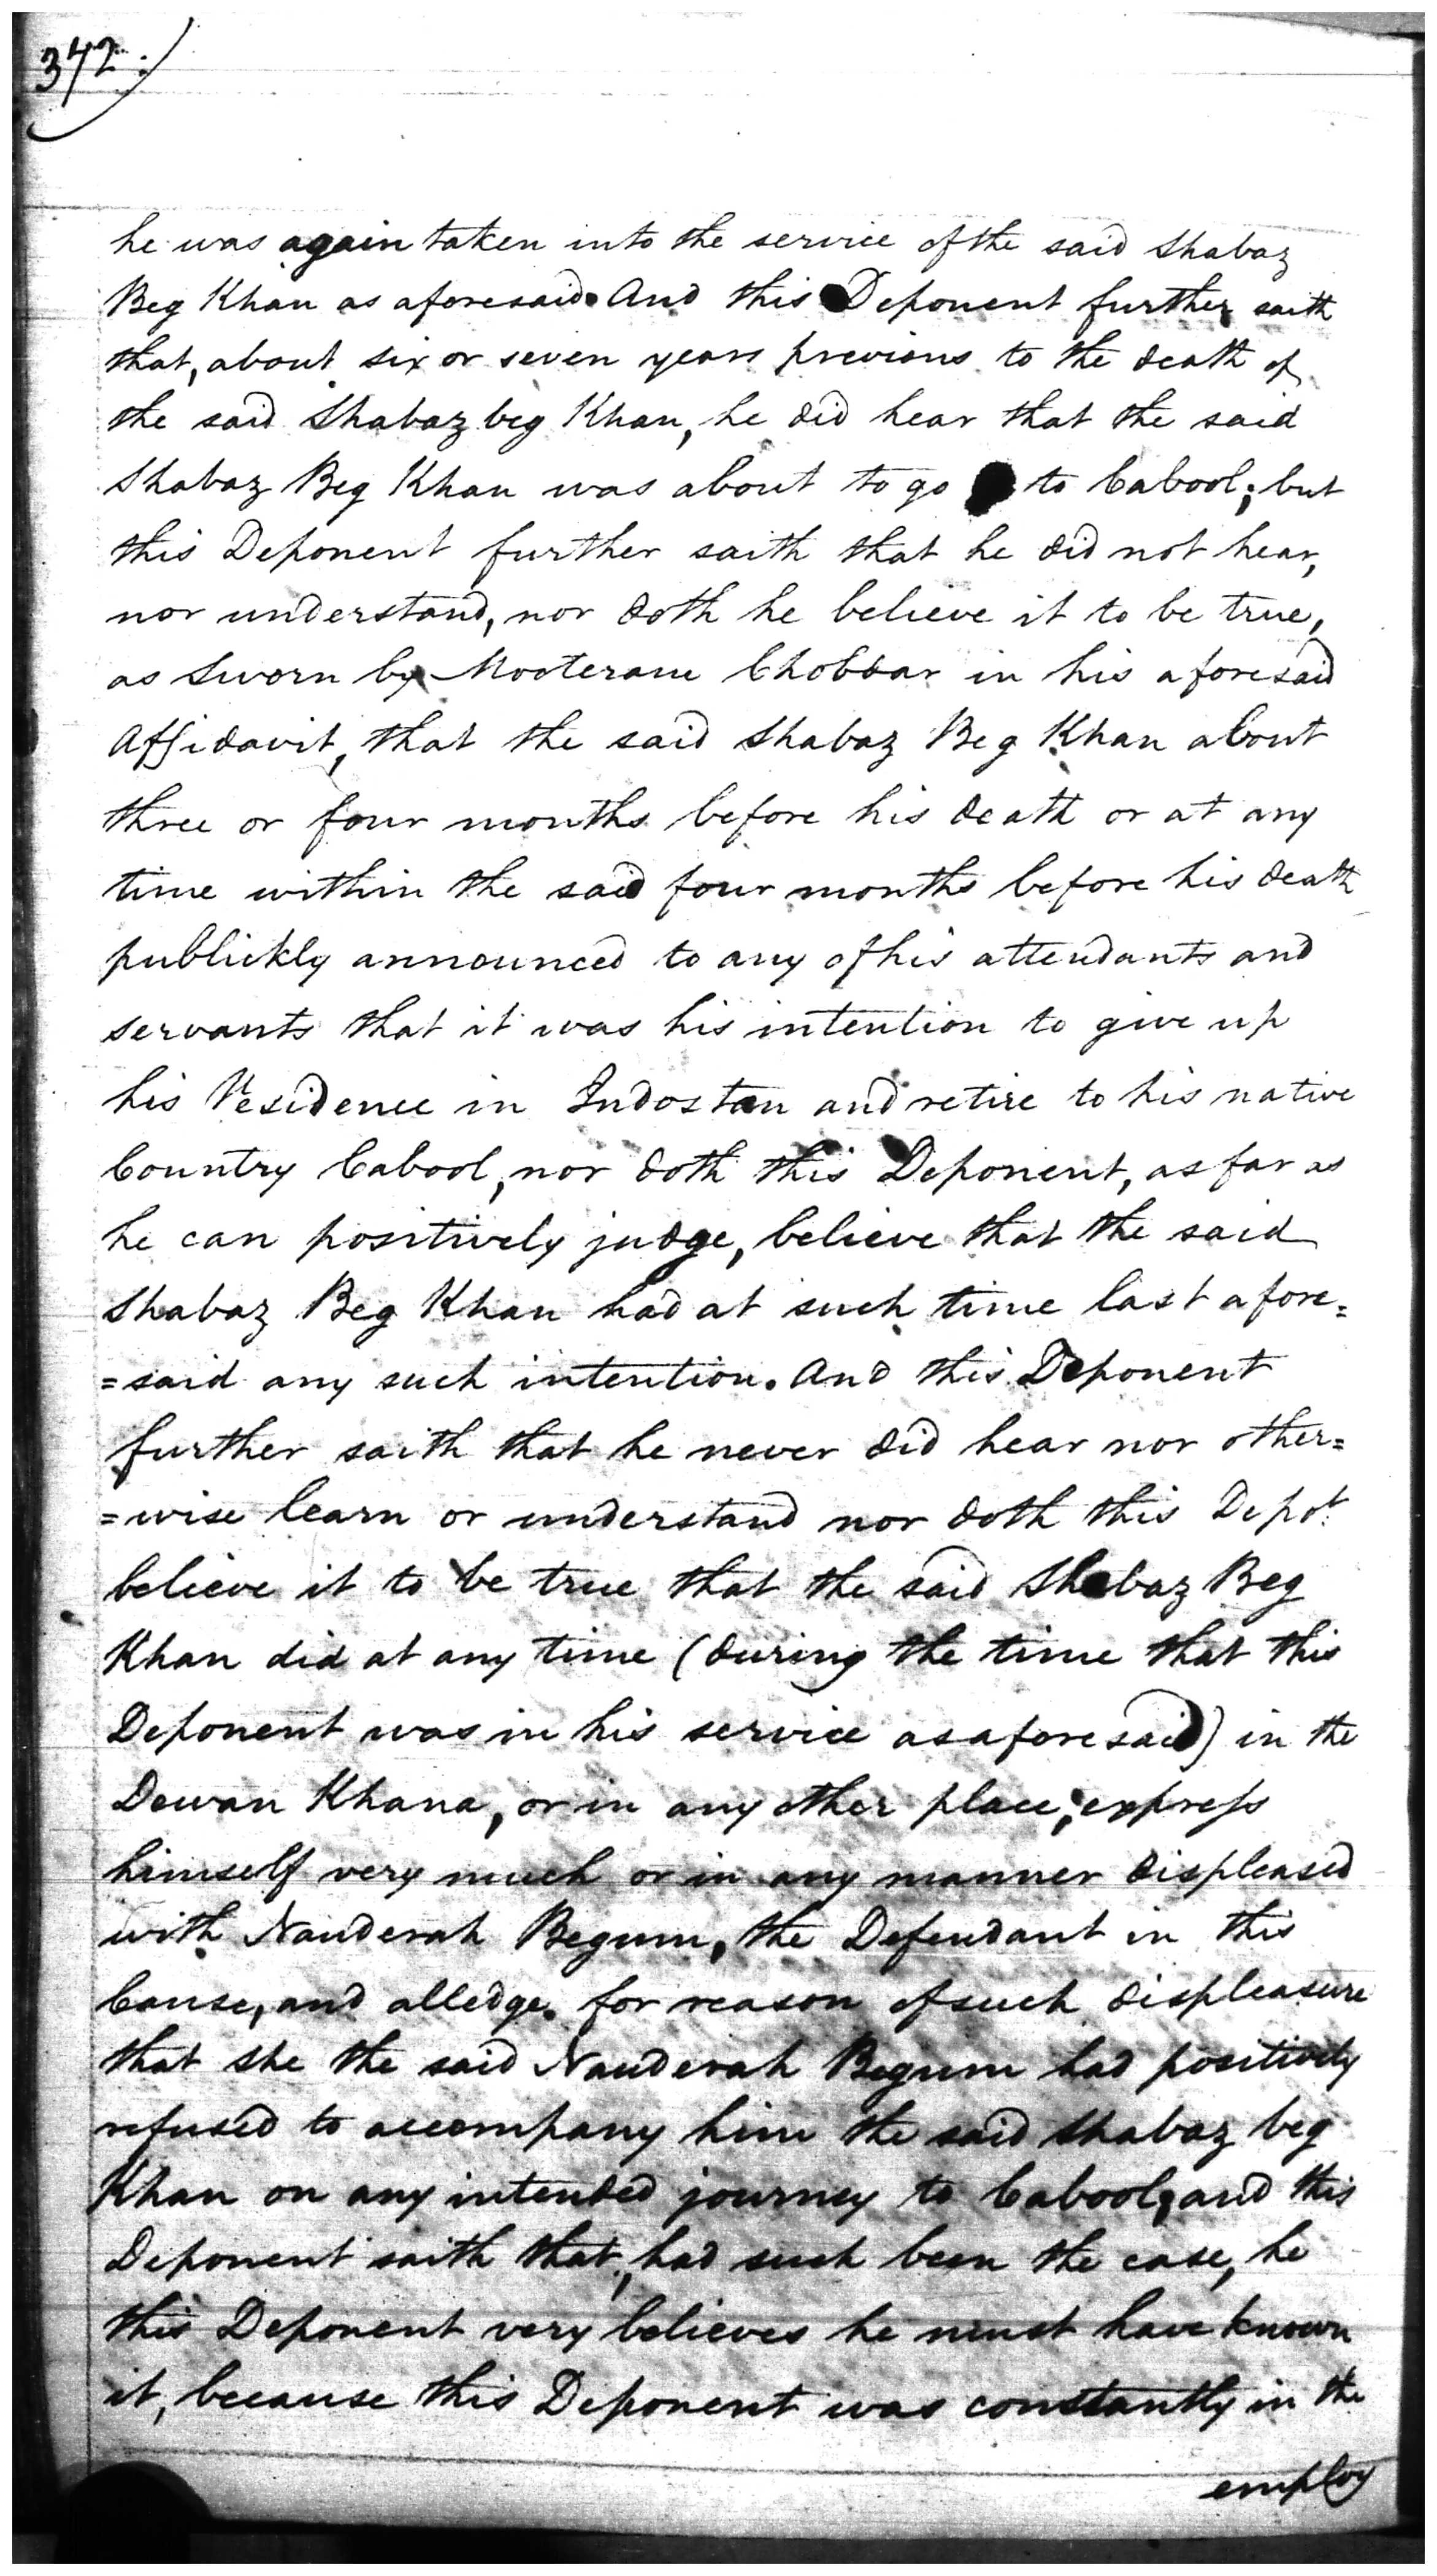 342:)
he was again taken into the service of the said Shabaz
Beg Khan as aforesaid. And this Deponent further saith
that, about six or seven years previous to the death of
the said Shabaz beg Khan, he did hear that the said
Shabaz Beg Khan was about to go to Cabool; but
this Deponent further saith that he did not hear,
nor understand, nor doth he believe it to be true,
as Sworn by Mooteram Chobdar in his aforesaid
Affidavit, that the said Shabaz Beg Khan about
three or four months before his death or at any
time within the said four months before his death
publickly announced to any of his attendants and
servants that it was his intention to give up
his Residence in Indostan and retire to his native
Country Cabool, nor doth this Deponent, as far as
he can positively judge, believe that the said
Shabaz Beg Khan had at such time last afore=
=said any such intention. And this Deponent
further saith that he never did hear nor other=
=wise learn or understand nor doth this Depot.
believe it to be true that the said Shabaz Beg
Khan did at any time (during the time that this
Deponent was in his service as aforesaid) in the
Dewan Khana, or in any other place, express
himself very much or in any manner displeased
with Nauderah Begum, the Defendant in this
Cause, and alledge. for reason of such displeasure
that she the said Nauderah Begum had positively
refused to accompany him the said Shabaz beg
Khan on any intended journey to Cabool, and this
Deponent saith that, had such been the case, he
this Deponent very believes he must have known
it, because this Deponent was constantly in the
employ